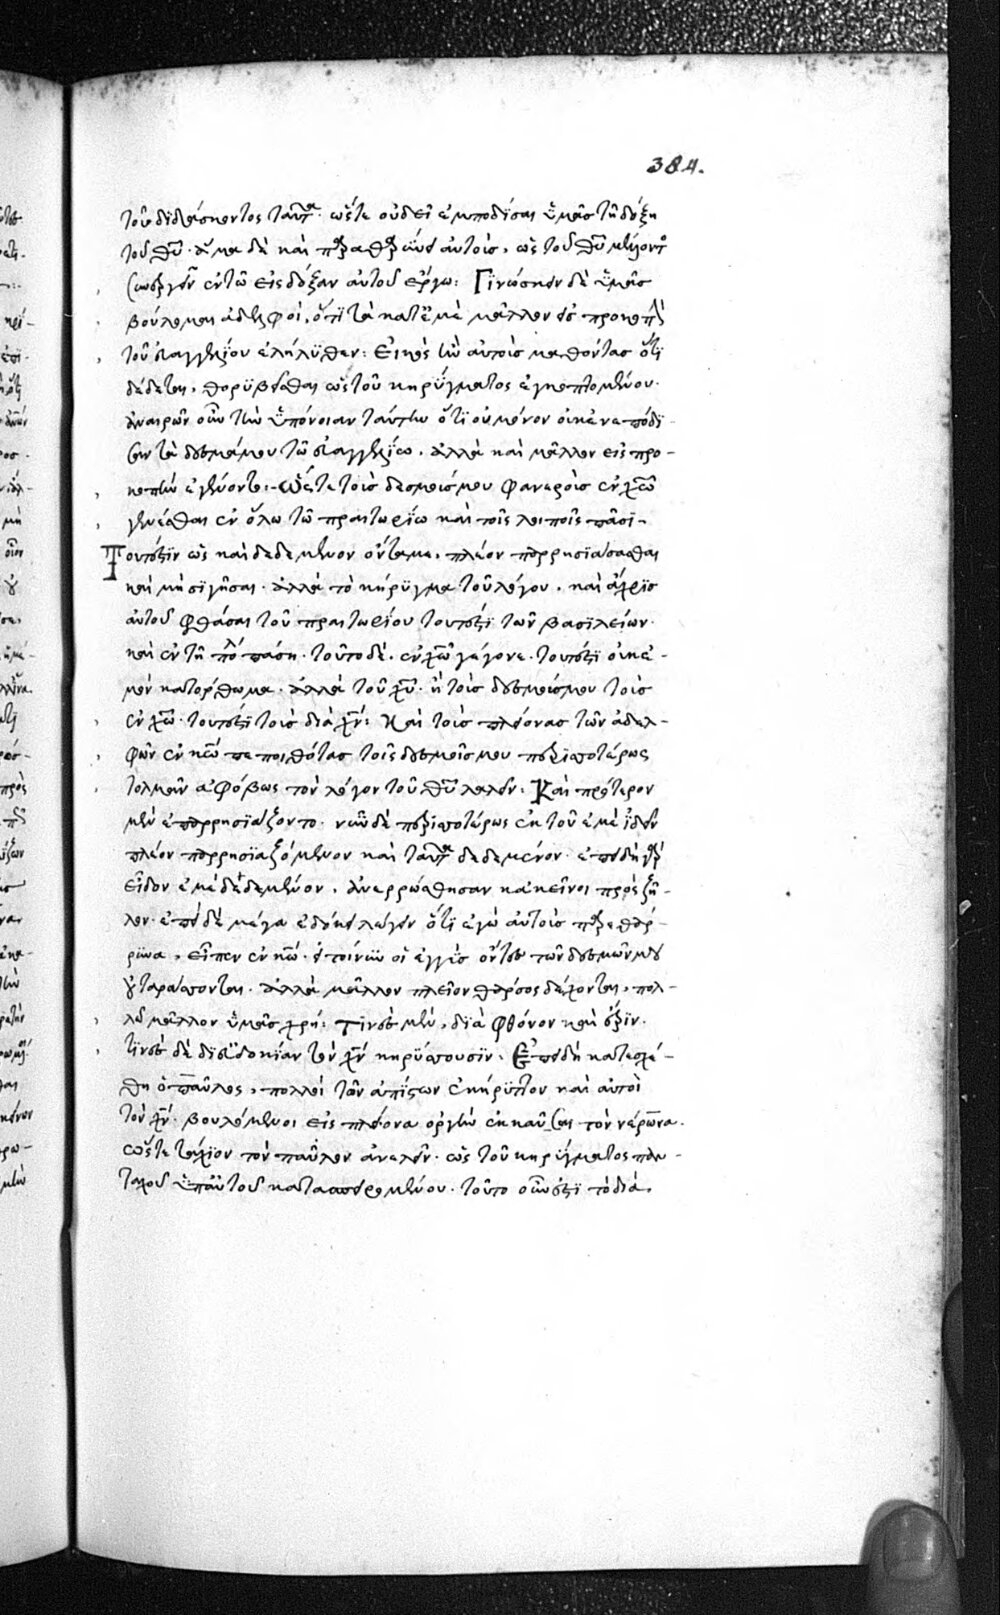 384.
τοῦ διδάσκοντος ταῦτα· ὥστε οὐδεὶ ἐμποδίσαι ὑμᾶς τῆ δόξη
τοῦ θῡ· ἅμα δὲ καὶ αὐτοῖς, ὡς τοῦ θῡ μέλλοντ
ἐν τῶ εἰς δόξαν αὐτοῦ ἔργω: Γινώσκειν δὲ ὑμᾶς
βούλομαι ἀδελφοὶ, ὅτι τὰ κατ' ἐμὲ μᾶλλον εἰς προκοπὴν
τοῦ εὐαγγελίου ἐλήλυθεν: Εἰκὸς ἦν αὐτοῖς μαθόντας ὅτι
δέδεται, θορυβεῖσθαι ὡς τοῦ κηρύγματος ἐγκοπτομένου·
ἀναιρῶν οὖν τὴν ὑπόνοιαν ταύτην ὅτι οὐ μόνον οὐκ ἐνεπόδι-
σαν τὰ δεσμά μου τῶ εὐαγγελίω, ἀλλὰ καὶ μᾶλλον εἰς προ-
κοπὴν ἐγένοντο:- Ὥστε τοὺς δεσμούς μου φανεροὺς ἐν χῶ
γενέσθαι ἐν ὅλω τῶ πραιτωρίω καὶ τοῖς λοιποῖς πᾶσι-
Τουτέστιν ὡς καὶ δεδεμένον ὄντα με, πλέον παρρησιάσασθαι
καὶ μὴ σιγῆσαι· ἀλλὰ τὸ κήρυγμα τοῦ λόγου, καὶ ἄχρις
αὐτοῦ φθάσαι τοῦ πραιτωρίου τουτέστι τῶν βασιλείων·
καὶ ἐν τῆ πόλ πάση· τοῦτο δὲ, ἐν χῶ γέγονε· τουτέστι οὐκ ἐ-
μὸν κατόρθωμα· ἀλλὰ τοῦ χῡ· ἢ τοὺς δεσμούς μου τοὺς
ἐν χῶ· τουτέστι τοὺς διὰ χν̄: Καὶ τοὺς πλείονας τῶν ἀδελ-
φῶν ἐν κῶ πεποιθότας τοῖς δεσμοῖς μου περισσοτέρως
τολμᾶν ἀφόβως τὸν λόγον τοῦ θῡ λαλεῖν: Καὶ πρότερον
μὲν ἐπαρρησιάζοντο· νῦν δὲ περισσοτέρως ἐκ τοῦ ἐμὲ ἰδεῖν
πλέον παρρησιαζόμενον καὶ ταῦτα δεδεμένον· ἐπειδὴ γὰρ
εἶδον ἐμὲ δεδεμένον, ἀνερρώσθησαν κἀκεῖνοι πρὸς ζῆ-
λον· ἐπεὶ δὲ μέγα ἐδόκει λέγειν ὅτι ἐγὼ αὐτοὺς παρεθάρ-
ρυνα, εἶπεν ἐν κῶ· εἰ τοίνυν οἱ ἐγγὺς ὄντες τῶν δεσμῶν μου
οὐ ταράττονται· ἀλλὰ μᾶλλον πλεῖον θάρσος δέχονται, πολ-
λῶ μᾶλλον ὑμᾶς χρή: Τινὲς μὲν, διὰ φθόνον καὶ ἔριν·
τινὲς δὲ δι' εὐδοκίαν τὸν χν̄ κηρύττουσιν· Ἐπειδὴ κατεσχέ-
θη ὁ παῦλος, πολλοὶ τῶν ἀπίστων ἐκήρυττον καὶ αὐτοὶ
τὸν χν̄· βουλόμενοι εἰς πλείονα ὀργὴν ἐκκαῦσαι τὸν νέρωνα·
ὥστε τάχιον τὸν παῦλον ἀνελεῖν· ὡς τοῦ κηρύγματος παν-
ταχοῦ ὑπ' αὐτοῦ κατασπειρομένου· τοῦτο οὖν ἐστὶ τὸ διὰ,